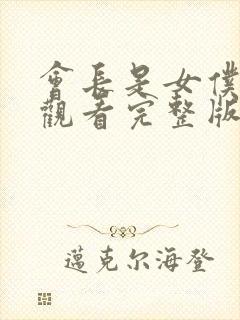 會長是女僕
觀看完整版
邁克尔海登